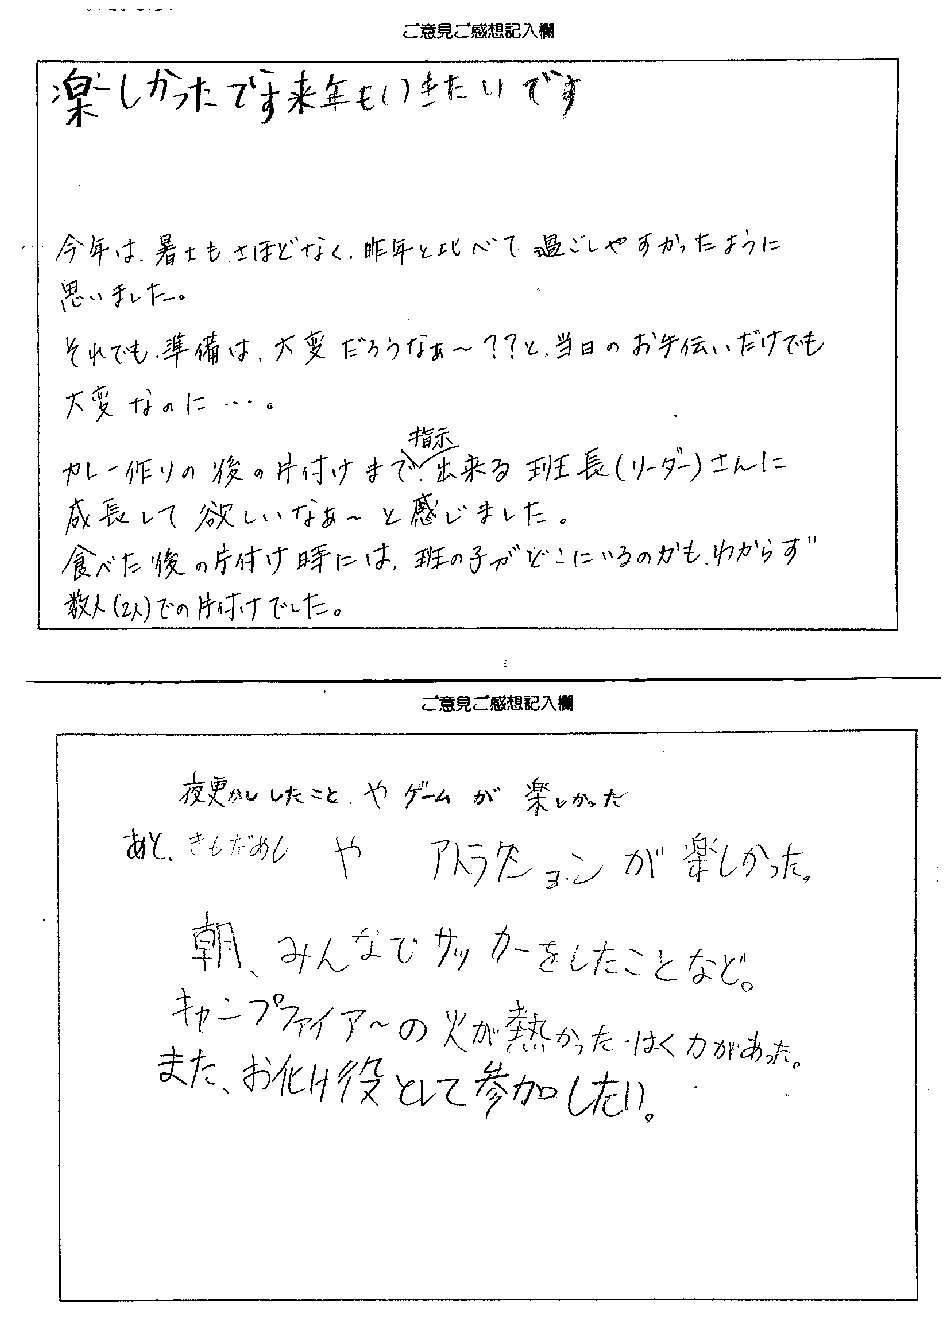 ご意見ご感想記入欄
楽しかったです来年もいきたいです
今年は、暑さも、さほどなく、昨年と比べて過ごしやすかったように
思いました。
それでも、準備は、大変だろうなぁ～??と、当日のお手伝いだけでも
大変なのに…。
カレー作りの後の片付けまで、指示出来る班長(リーダー)さんに
成長して欲しいなぁ～と感じました。
食べた後の片付け時には、班の子がどこにいるのかも、わからず
数人(2人)での片付けでした。
ご意見ご感想記入欄
夜更かししたこと、やゲームが楽しかった
あと、きもだめしやアトラクションが楽しかった。
朝、みんなでサッカーをしたことなど。
キャンプファイアーの火が熱かった・はく力があった。
また、お化け役として参加したい。